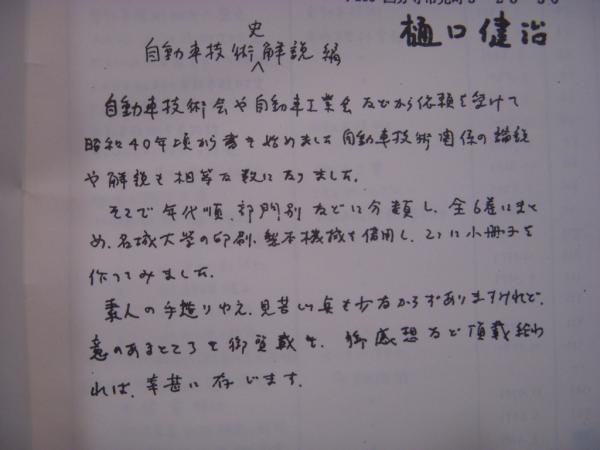 樋口健治
自動車技術史解説編
自動車技術会や自動車工業会などから依頼を受けて
昭和40年頃から書き始めました自動車技術関係の論説
や解説も相等な数になりました。
そこで年代順、部門別などに分類し、全6巻にまと
め、名城大学の印刷、製本機械を借用し、ここに小冊子を
作ってみました。
素人の手造りゆえ、見苦しい点も少なからずありますけれど、
意のあるところを御賢載を、御感想など頂載給わ
れば、幸甚に存じます。